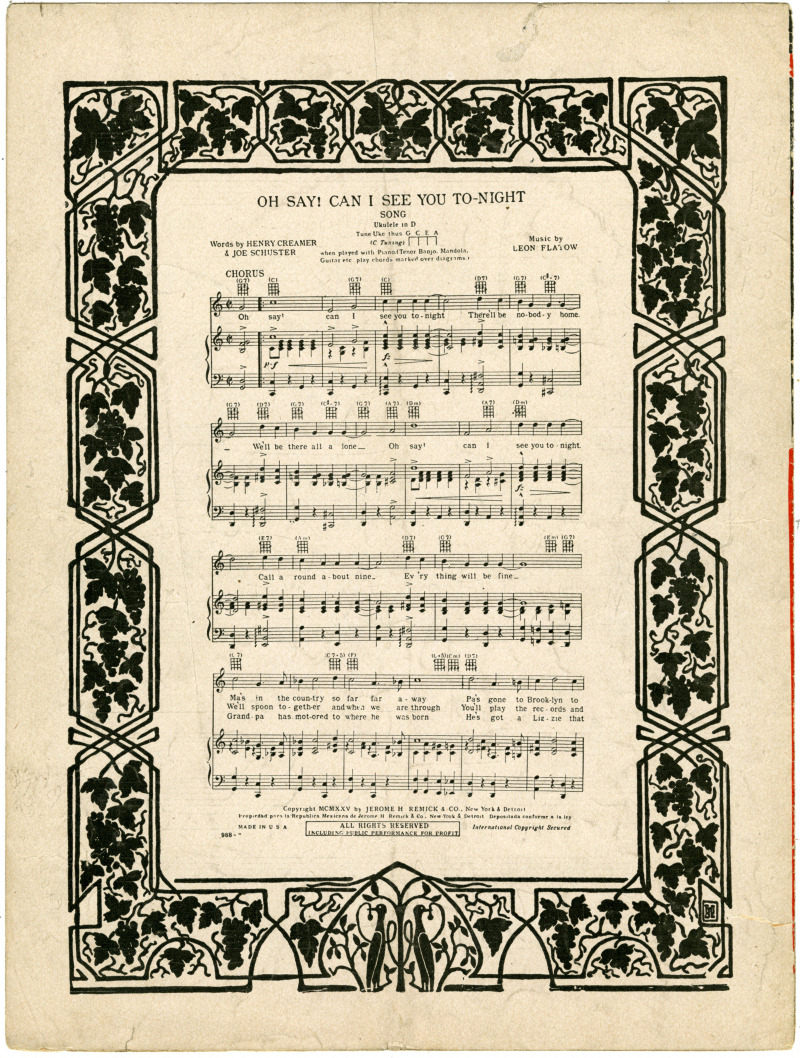 OH SAY! CAN I SEE YOU TO-NIGHT
SONG
Ukulele in D
Tune Uke thus G C E A
(C Tuning)
Words by HENRY CREAMER
& JOE SCHUSTER
when played with Piano (Tenor Banjo, Mandola,
Guitar etc. play chords marked over diagrams.)
Music by
LEON FLATOW
CHORUS
(G7) (C) (G7) (C) (D7) (G7) (C#-7)
Oh say! can I see you to-night There'll be no-bod-y home.
p-f
(G7) (D7) (G7) (C#-7) (G7) (A7) (Dm) (A7) (Dm)
We'll be there all a lone Oh say! can I see you to-night.
(E7) (Am) (D7) (G7) (Em) (G7)
Call a round a-bout nine Ev'ry thing will be fine
(C7+5) (F) (Cm) (D7)
Ma's in the coun-try so far far a-way Pa's gone to Brook-lyn to
We'll spoon to-geth-er and when we are through You'll play the rec-ords and
Grand-pa has mot-ored to where he was born He's got a Liz-zie that
Copyright MCMXXV by JEROME H. REMICK & CO., New York & Detroit
Propiedad para la Republica Mexicana de Jerome H. Remick & Co. New York & Detroit Depositada conforme a la ley
MADE IN U S A
ALL RIGHTS RESERVED
INCLUDING PUBLIC PERFORMANCE FOR PROFIT
International Copyright Secured
988-